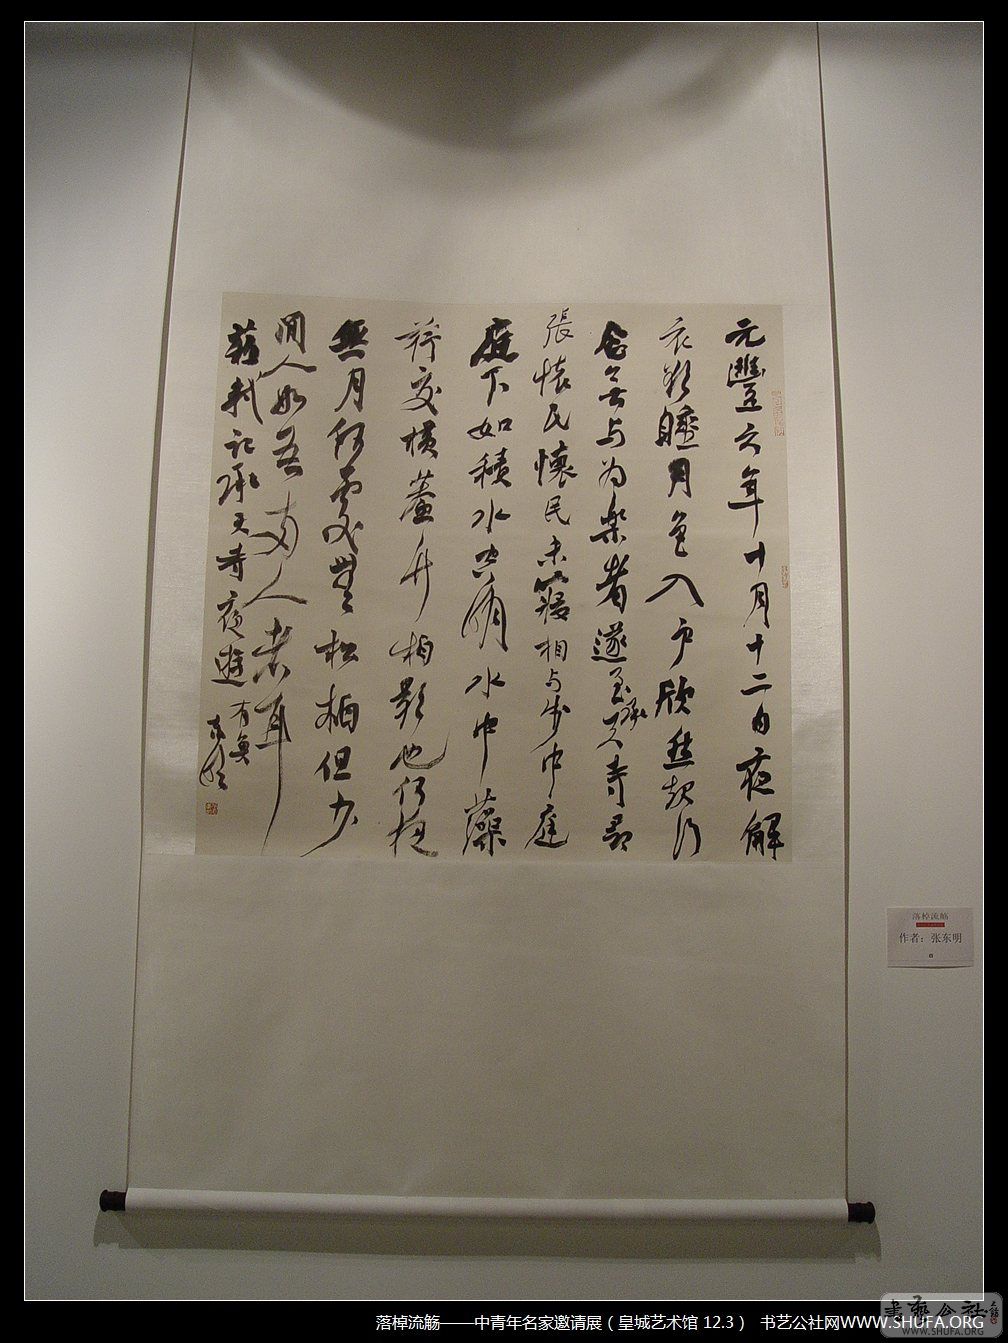 元豐六年十月十二日夜解
衣欲睡月色入户欣然起行
念无与为樂者遂至承天寺尋
張懷民懷民未寢相与步中庭
庭下如積水空明水中藻
荇交横蓋竹柏影也何夜
無月何處無松柏但少
閒人如吾兩人者耳
蘇軾記承天寺夜遊
东明
落棹流觞
作者：张东明
落棹流觞——中青年名家邀请展（皇城艺术馆 12.3） 书艺公社网WWW.SHUFA.ORG
書藝公社
WWW.SHUFA.ORG